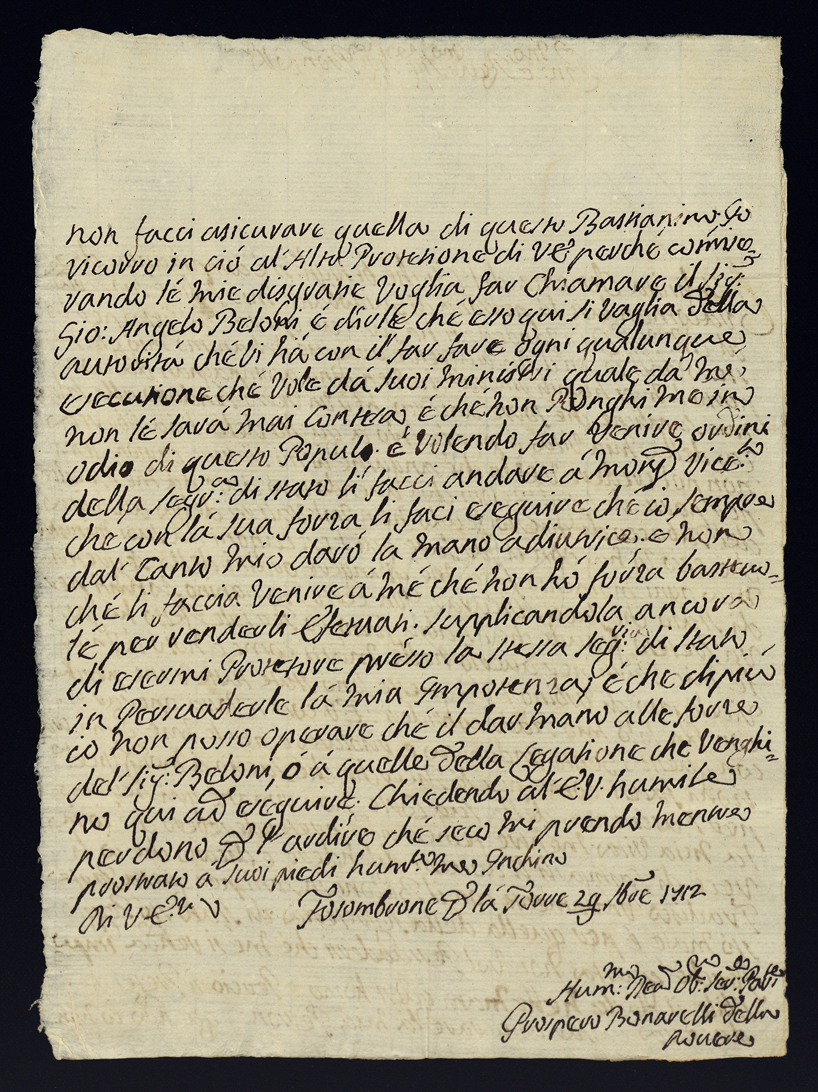 non facci asicurare quella di questo Bastianino. Io
ricorro in ció al'Alta Protetione di V.E. perche comise=
rando lé mie disgratie Voglia far Chiamare il Sig.
Gio: Angelo Beloni é dirle ché esso qui si vaglia della
autorítá ché li há con il far fare ogni qualunque
esecutione ché Vole dá suoi ministri quale dá me
non lé sará mai Contesa é ché non Ponghi me in
odio di questo Populo. é Volendo far Venire ordini
della Segr.a di stato li facci andare á Mons.
che con lá sua forza li faci eseguire ché ió sempre
dal' Canto mio daró la mano adiutrice. e non
ché li faccia Venire á mé ché non hó forza basteuo=
lé per renderli Efetuati. Supplicandola ancora
di esermi Protetore presso la stessa Seg.ria di Stato
in Persuaderle lá mia Impotenza, é che di piú
ió non posso operare ché il dar mano alle forze
del' Sig.: Beloni, ó á quelle della Legatione che Venghi=
no qui ad eseguire. Chiedendo al'E.V. humile
perdono dell'ardíre ché seco mi prendo mentre
prostrato a suoi piedi hum.te me Inchino
Di V.E.
Fosombrone dá lá Torre 29 1712
Hum.mo Deu.mo Ob.mo Ser.
Prospero Bonarelli della
Rouere